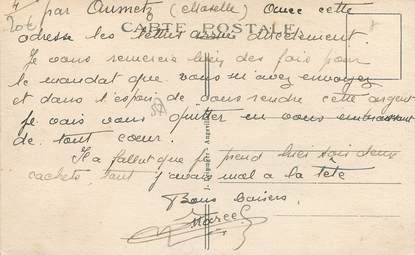 par Aumetz (Moselle) Avec cette
CARTE POSTALE
adresse les lettres arrive directement.
Je vous remercie bien des fois pour
le mandat que vous m'avez envoyez
et dans l'espoir de vous rendre cette argent
je vais vous quitter en vous embrassant
de tout coeur.
Il a fallut que je prend hier soir deux
cachets, tant j'avais mal a la tête
Bons baisers
Marcel